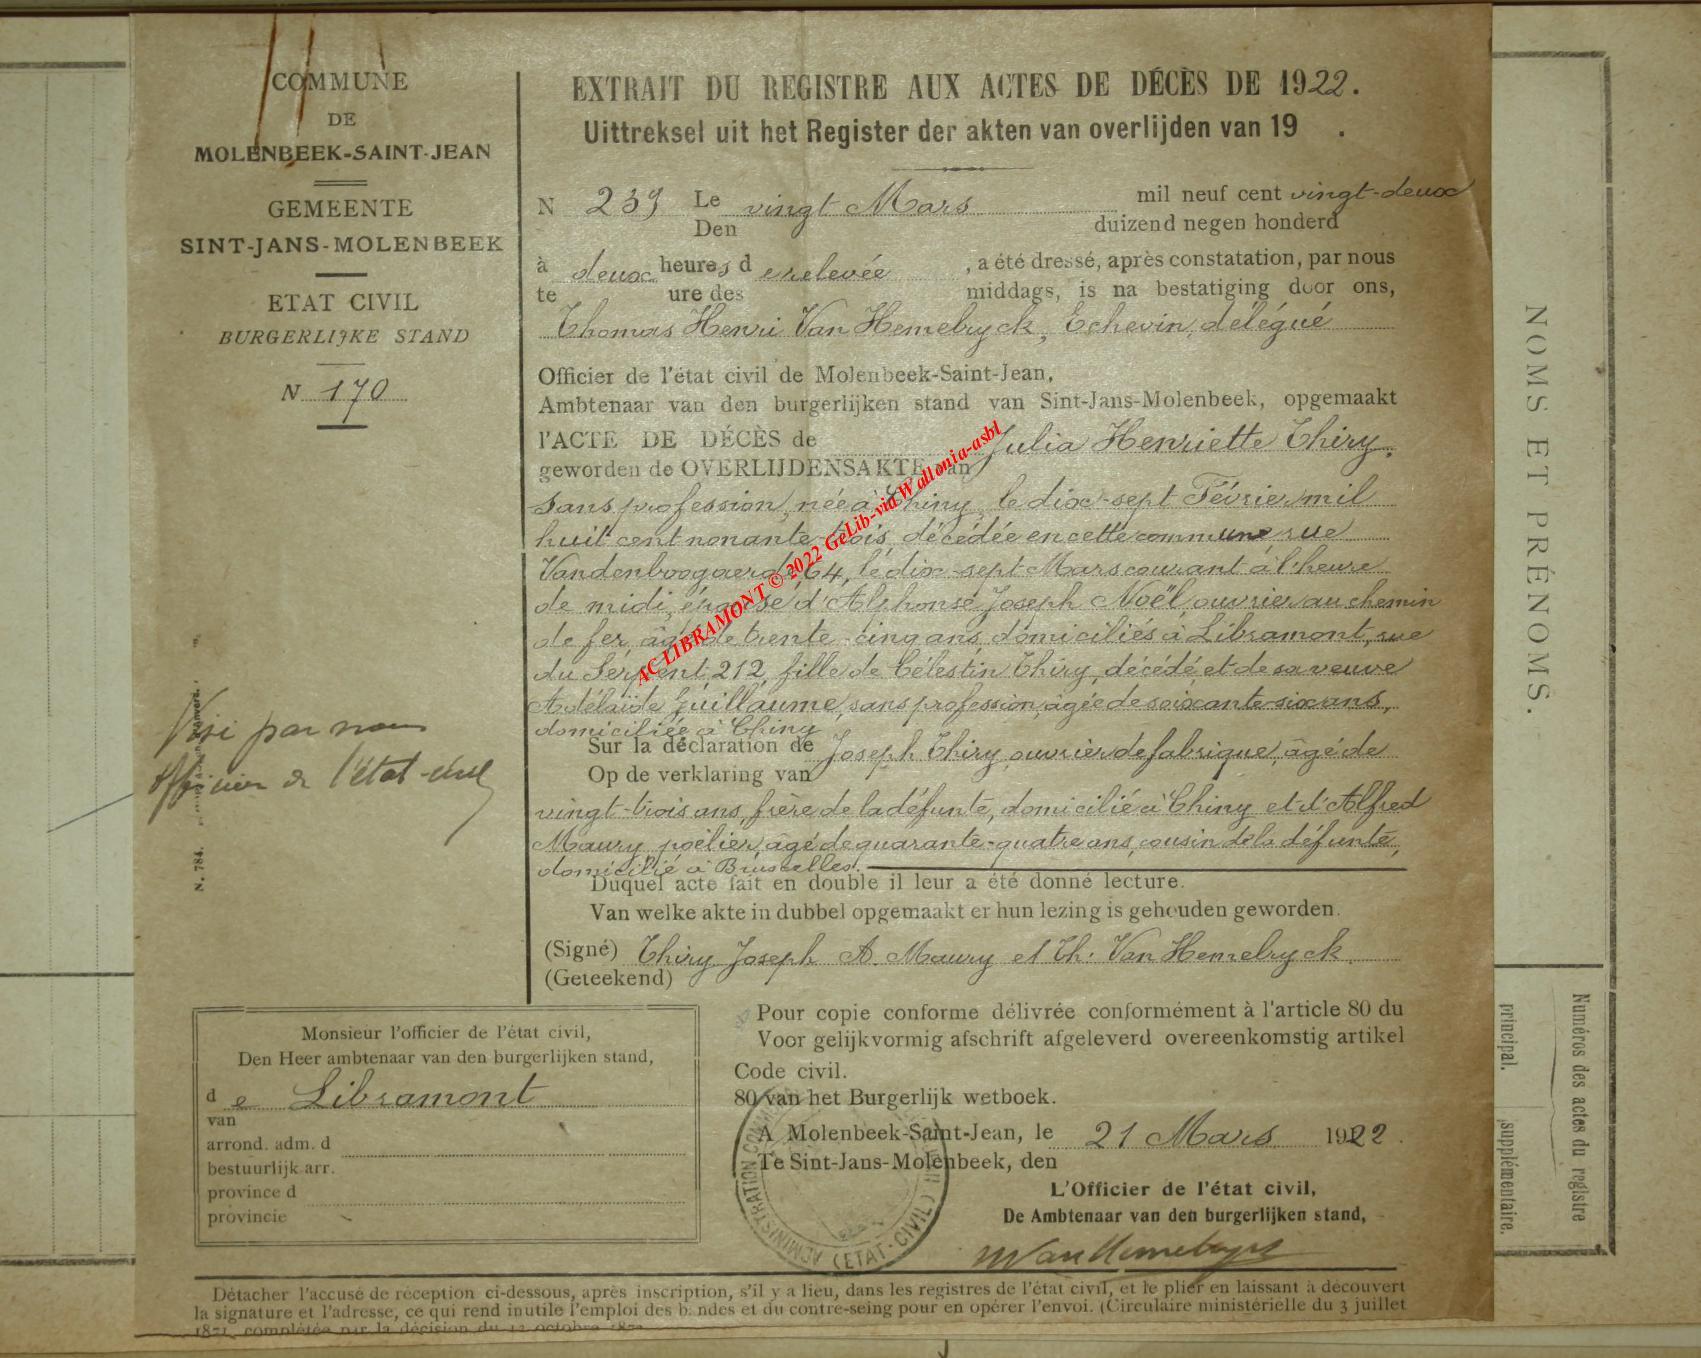 COMMUNE
DE
MOLENBEEK-SAINT-JEAN
GEMEENTE
SINT-JANS-MOLENBEEK
ETAT CIVIL
BURGERLIJKE STAND
N 170
EXTRAIT DU REGISTRE AUX ACTES DE DÉCÈS DE 1922.
Uittreksel uit het Register der akten van overlijden van 19 .
N 239 Le vingt Mars mil neuf cent vingt-deux
Den duizend negen honderd
à deux heures d erelevée , a été dressé, après constatation, par nous
te ure des middags, is na bestatiging door ons,
Thomas Henri Van Hemelryck, Echevin, délégué
Officier de l'état civil de Molenbeek-Saint-Jean,
Ambtenaar van den burgerlijken stand van Sint-Jans-Molenbeek, opgemaakt
l'ACTE DE DÉCÈS de Julia Henriette Thiry,
geworden de OVERLIJDENSAKTE van
sans profession, née à Chiny, le dix-sept Février mil
huit cent nonante-trois, décédée en cette commune rue
Vandenboogaerde, 64, le dix-sept Mars courant à l'heure
de midi, épouse d'Alphonse Joseph Noël, ouvrier au chemin
de fer, âgé de trente-cinq ans, domiciliés à Libramont, rue
du Serpent 212, fille de Célestin Thiry, décédé et de sa veuve
Adélaïde Guillaume, sans profession, âgée de soixante-six ans,
domiciliée à Chiny
Sur la déclaration de Joseph Thiry, ouvrier de fabrique, âgé de
Op de verklaring van
vingt-trois ans, frère de la défunte, domicilié à Chiny et d'Alfred
Maury, poêlier, âgé de quarante-quatre ans, cousin de la défunte,
domicilié à Bruxelles.
Duquel acte fait en double il leur a été donné lecture.
Van welke akte in dubbel opgemaakt er hun lezing is gehouden geworden.
(Signé) Thiry Joseph A. Maury et Th. Van Hemelryck.
(Geteekend)
Visé par nous
Officier de l'état-civil
N. 784.
Monsieur l'officier de l'état civil,
Den Heer ambtenaar van den burgerlijken stand,
d e Libramont
van
arrond. adm. d
bestuurlijk arr.
province d
provincie
Pour copie conforme délivrée conformément à l'article 80 du
Voor gelijkvormig afschrift afgeleverd overeenkomstig artikel
Code civil.
80 van het Burgerlijk wetboek.
A Molenbeek-Saint-Jean, le 21 Mars 1922.
Te Sint-Jans-Molenbeek, den
L'Officier de l'état civil,
De Ambtenaar van den burgerlijken stand,
VanHemelryck
ADMINISTRATION COMM
(ETAT-CIVIL)
Détacher l'accusé de réception ci-dessous, après inscription, s'il y a lieu, dans les registres de l'état civil, et le plier en laissant à découvert
la signature et l'adresse, ce qui rend inutile l'emploi des bandes et du contre-seing pour en opérer l'envoi. (Circulaire ministérielle du 3 juillet
1871, complétée par la décision du 12 octobre
NOMS ET PRÉNOMS.
Numéros des actes du registre
principal.
supplémentaire.
AC LIBRAMONT © 2022 GeLib-via Wallonia-asbl